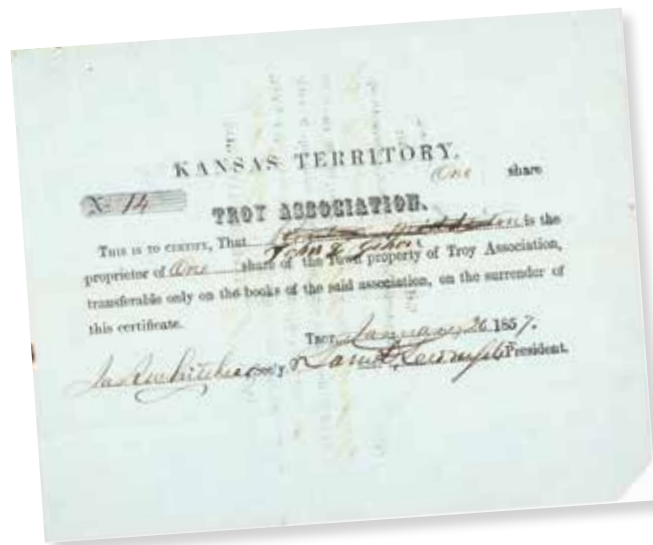 KANSAS TERRITORY.
One share
No 14
TROY ASSOCIATION.
THIS IS TO CERTIFY, That is the
proprietor of One share of the Town property of Troy Association,
transferable only on the books of the said association, on the surrender of
this certificate.
TROY, January 26 1857.
Sec'y President.